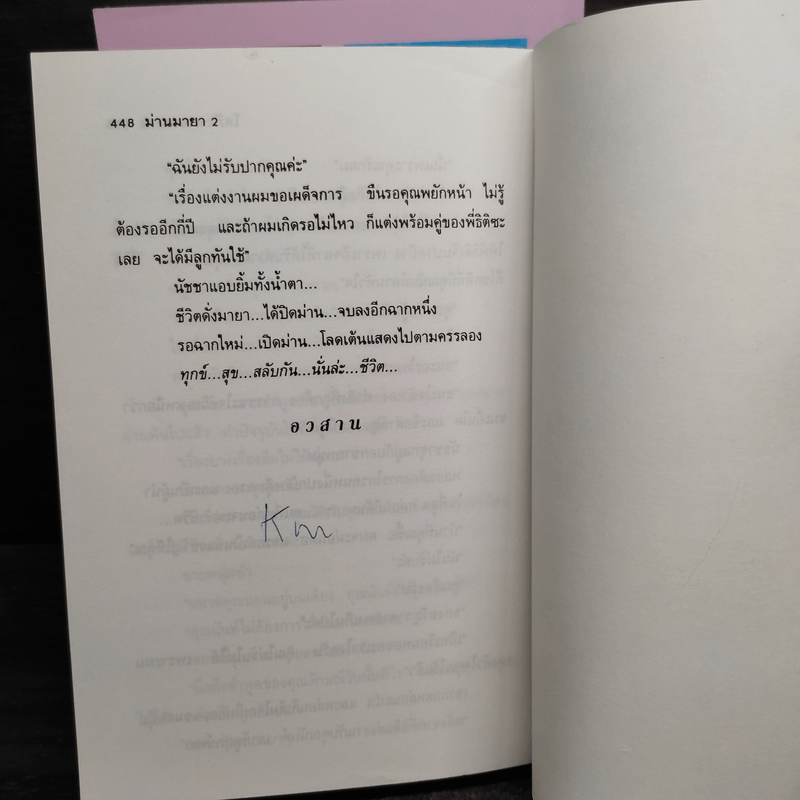 448 ม่านมายา 2
"ฉันยังไม่รับปากคุณค่ะ"
"เรื่องแต่งงานผมขอเผด็จการ ขืนรอคุณพยักหน้า ไม่รู้
ต้องรออีกกี่ปี และถ้าผมเกิดรอไม่ไหว ก็แต่งพร้อมคู่ของพี่ธิติซะ
เลย จะได้มีลูกทันใช้"
นัชชาแอบยิ้มทั้งน้ำตา...
ชีวิตดั่งมายา...ได้ปิดม่าน...จบลงอีกฉากหนึ่ง
รอฉากใหม่...เปิดม่าน...โลดเต้นแสดงไปตามครรลอง
ทุกข์...สุข...สลับกัน...นั่นล่ะ...ชีวิต...
อวสาน